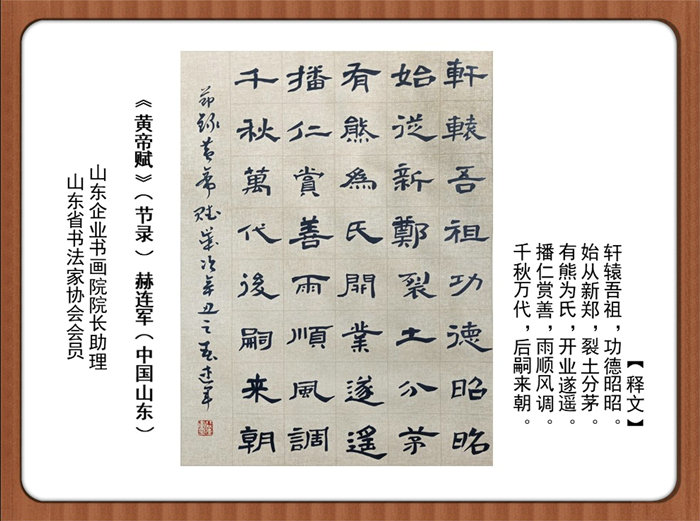 【释文】
轩辕吾祖，功德昭昭。
始从新郑，裂土分茅。
有熊为氏，开业遂遥。
播仁赏善，雨顺风调。
千秋万代，后嗣来朝。
軒轅吾祖功德昭昭
始從新鄭裂土分茅
有熊為氏開業遂遙
播仁賞善雨順風調
千秋萬代後嗣来朝
节録黄帝赋岁次辛丑之春连军
《黄帝赋》（节录） 赫连军（中国山东）
山东企业书画院院长助理
山东省书法家协会会员